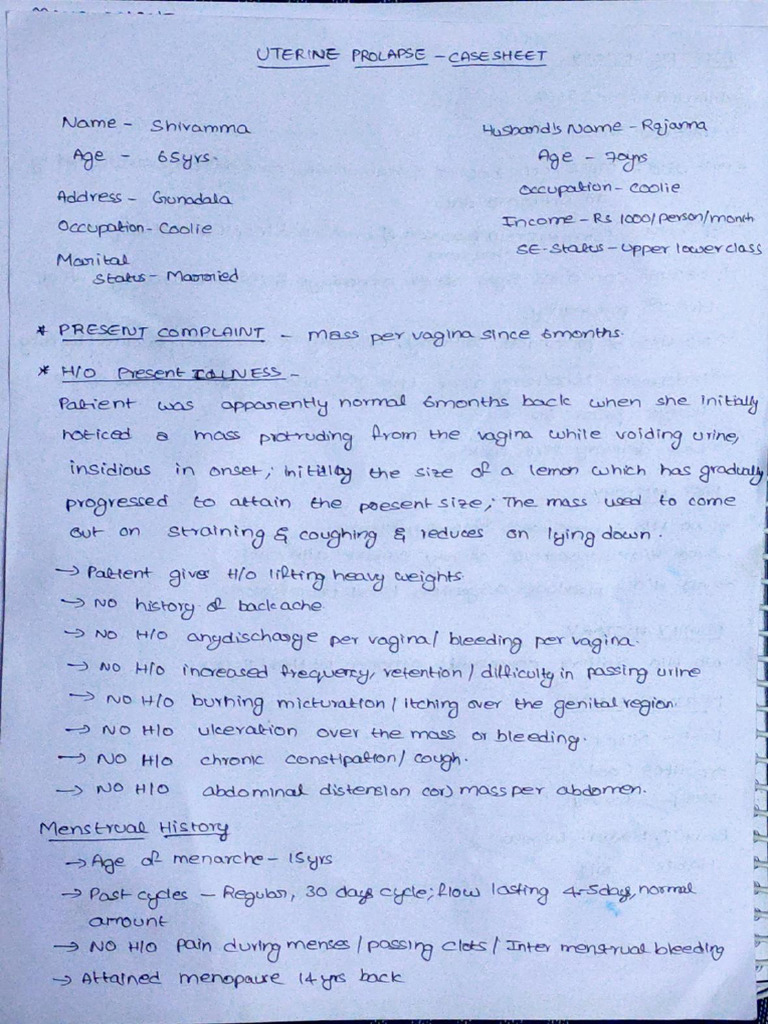 UTERINE PROLAPSE - CASESHEET
Name - Shivamma
Age - 65yrs.
Address - Gunadala
Occupation - Coolie
Marital
Status - Married
Husband's Name - Rajanna
Age - 70yrs
Occupation - Coolie
Income - Rs 1000/person/month
SE-Status - Upper lower class
* PRESENT COMPLAINT - mass per vagina since 6months.
* H/O Present ILLNESS -
Patient was apparently normal 6months back when she initially
noticed a mass protruding from the vagina while voiding urine,
insidious in onset; initially the size of a lemon which has gradually
progressed to attain the present size; The mass used to come
out on straining & coughing & reduces on lying down.
→ Patient gives H/O lifting heavy weights.
→ NO history of backache.
→ NO H/O anydischarge per vagina/ bleeding per vagina.
→ NO H/O increased frequency, retention / difficulty in passing urine
→ NO H/O burning micturation / Itching over the genital region.
→ NO H/O ulceration over the mass or bleeding.
→ NO H/O chronic constipation/ cough.
→ NO H/O abdominal distension (or) mass per abdomen.
Menstrual History
→ Age of menarche - 15yrs
→ Past cycles - Regular, 30 days cycle; flow lasting 4-5days, normal
amount
→ NO H/O Pain during menses / passing clots / Inter menstrual bleeding
→ Attained menopause 14 yrs back